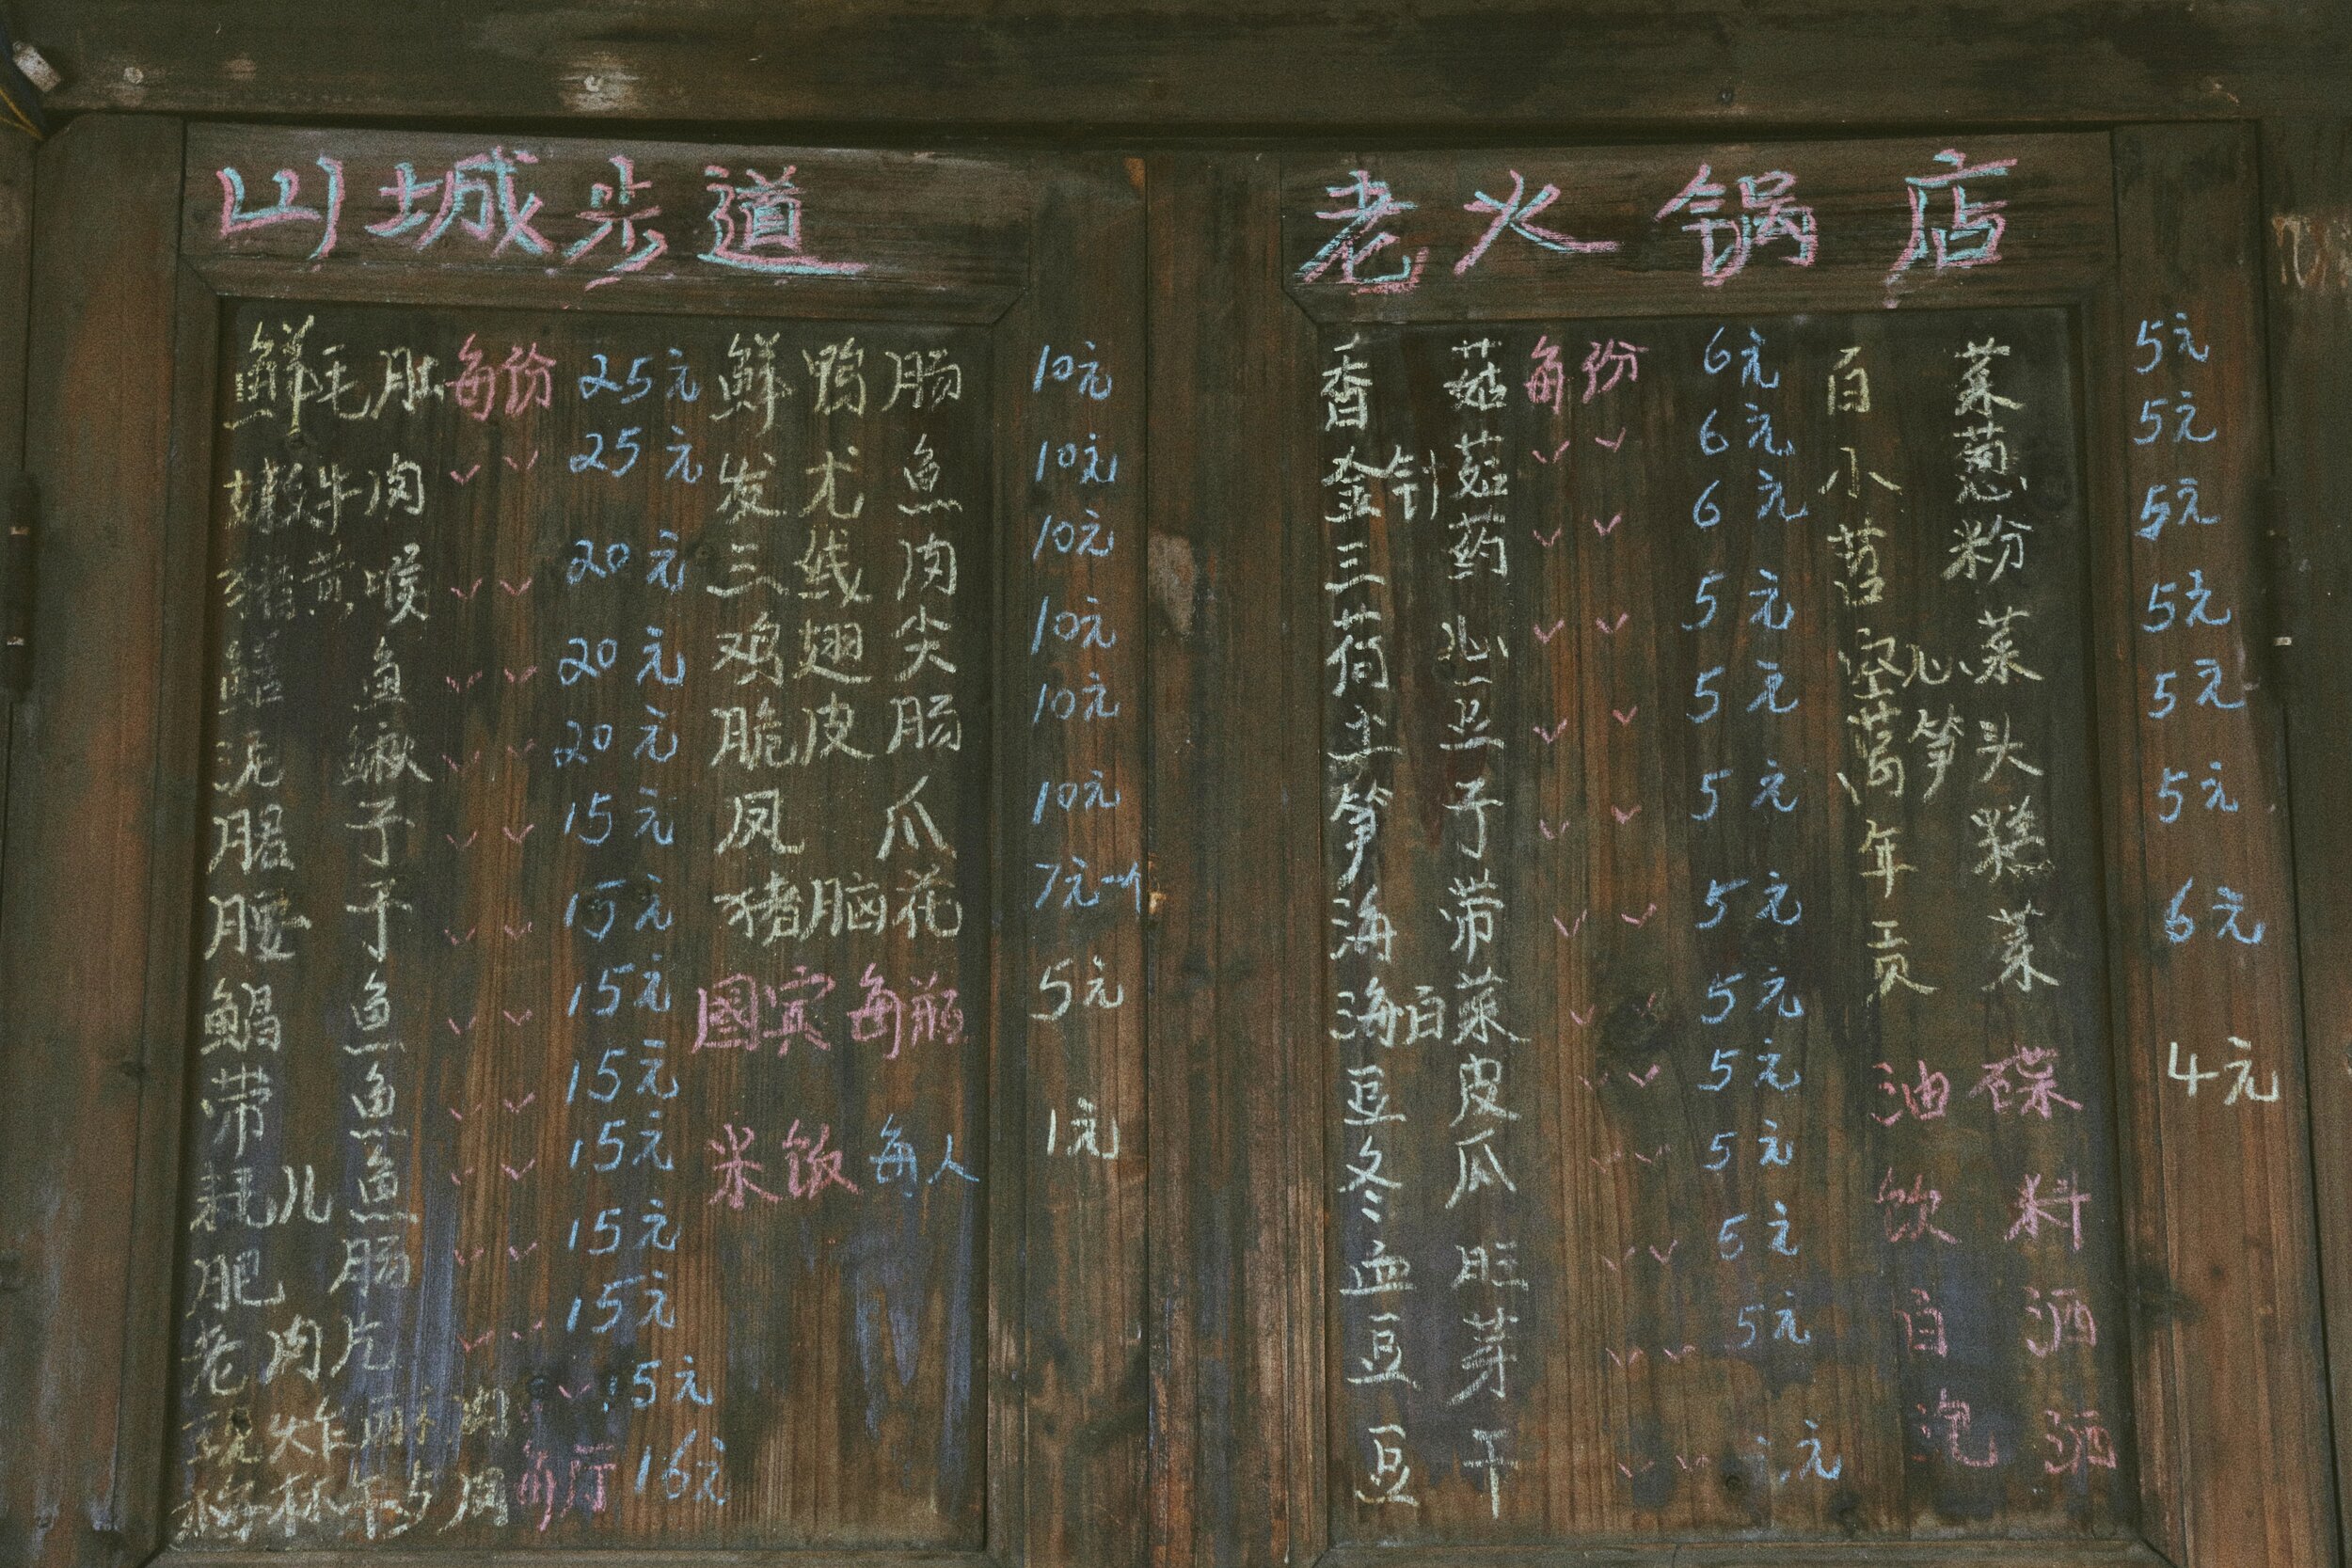 山城步道
鲜毛肚 每份 25元
嫩牛肉 〃 25元
猪黄喉 〃 20元
鳝鱼 〃 20元
泥鳅 〃 20元
腰子 〃 15元
鲳鱼 〃 15元
带鱼 〃 15元
耗儿鱼 〃 15元
肥肠 〃 15元
老肉片 〃 15元
现炸酥肉 〃 15元
梅林午 16元
鲜鸭肠 10元
发尤鱼 10元
三线肉 10元
鸡翅尖 10元
脆皮肠 10元
凤爪 10元
猪脑花 7元一个
国宾 每瓶 5元
米饭 每人 1元
老火锅店
香菇 每份 6元
金针菇 〃 6元
三药 〃 6元
荷心 〃 5元
土豆 〃 5元
笋子 〃 5元
海带 〃 5元
海白菜 〃 5元
豆皮 〃 5元
冬瓜 〃 5元
血旺 〃 5元
豆芽 〃 5元
豆干 〃 元
白菜 5元
小葱 5元
苕粉 5元
空心菜 5元
莴笋头 5元
年糕 5元
贡菜 6元
油碟 4元
饮料
白酒
泡酒